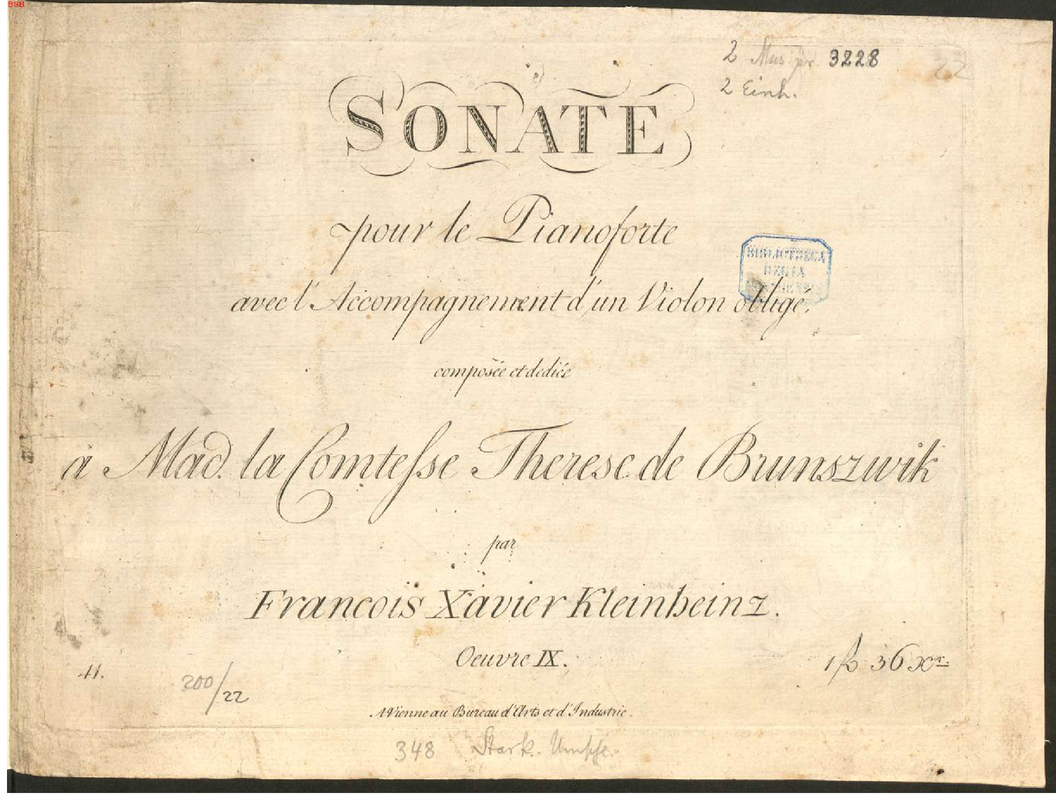 2 Mus.pr. 3228
22
2 Einh.
SONATE
pour le Pianoforte
BIBLIOTHECA
REGIA
avec l'Accompagnement d'un Violon obligé.
composée et dediée
à Mad. la Comtesse Therese de Brunszwik
par
Francois Xavier Kleinheinz.
Oeuvre IX.
1 f 36 Xr.
41.
200/22
A Vienne au Bureau d'Arts et d'Industrie.
348 Stark.